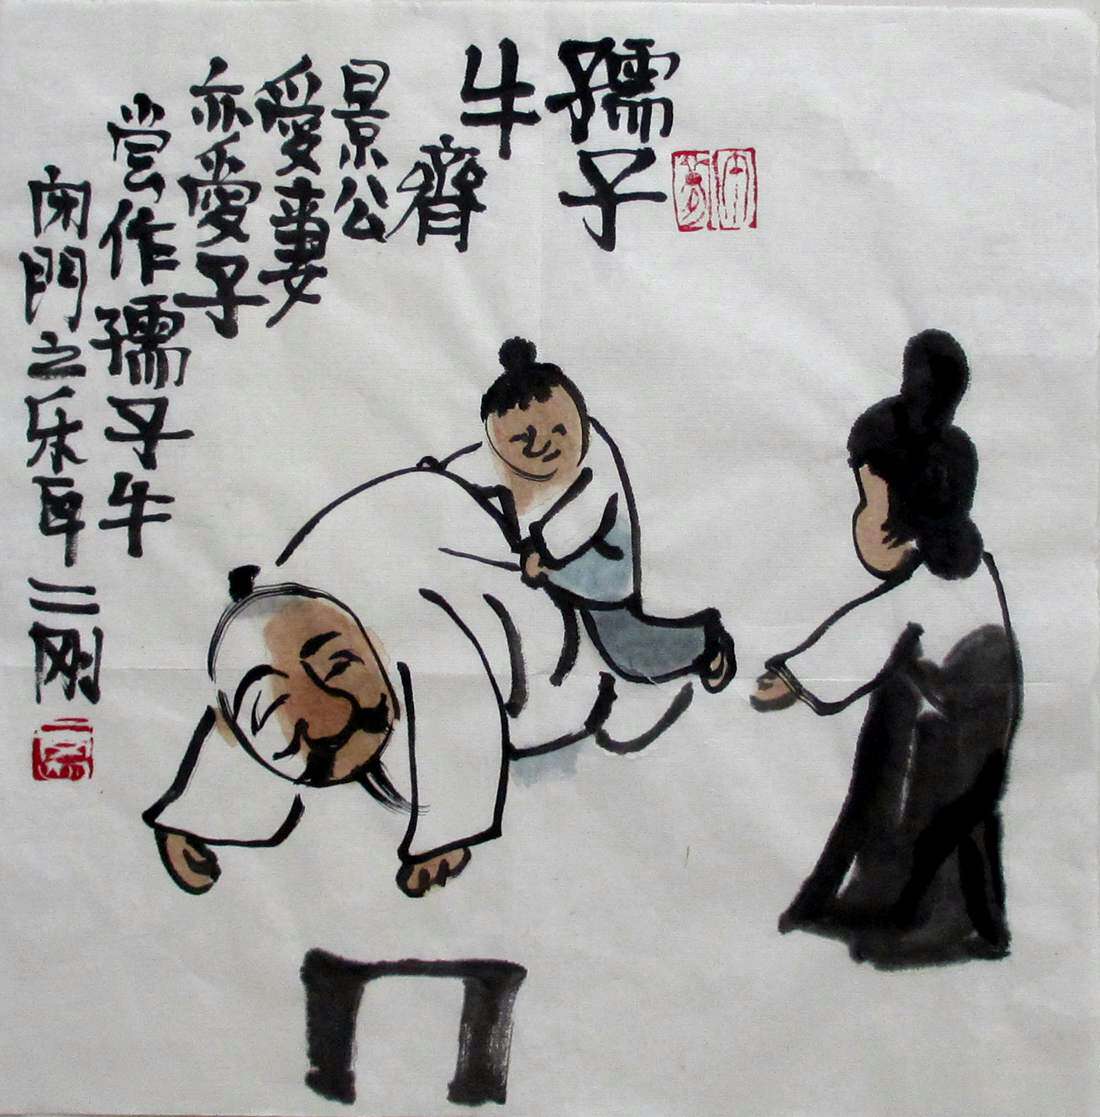 孺子
牛
齊
景公
愛妻
亦愛子
尝作孺子牛
闭門之乐耳二刚